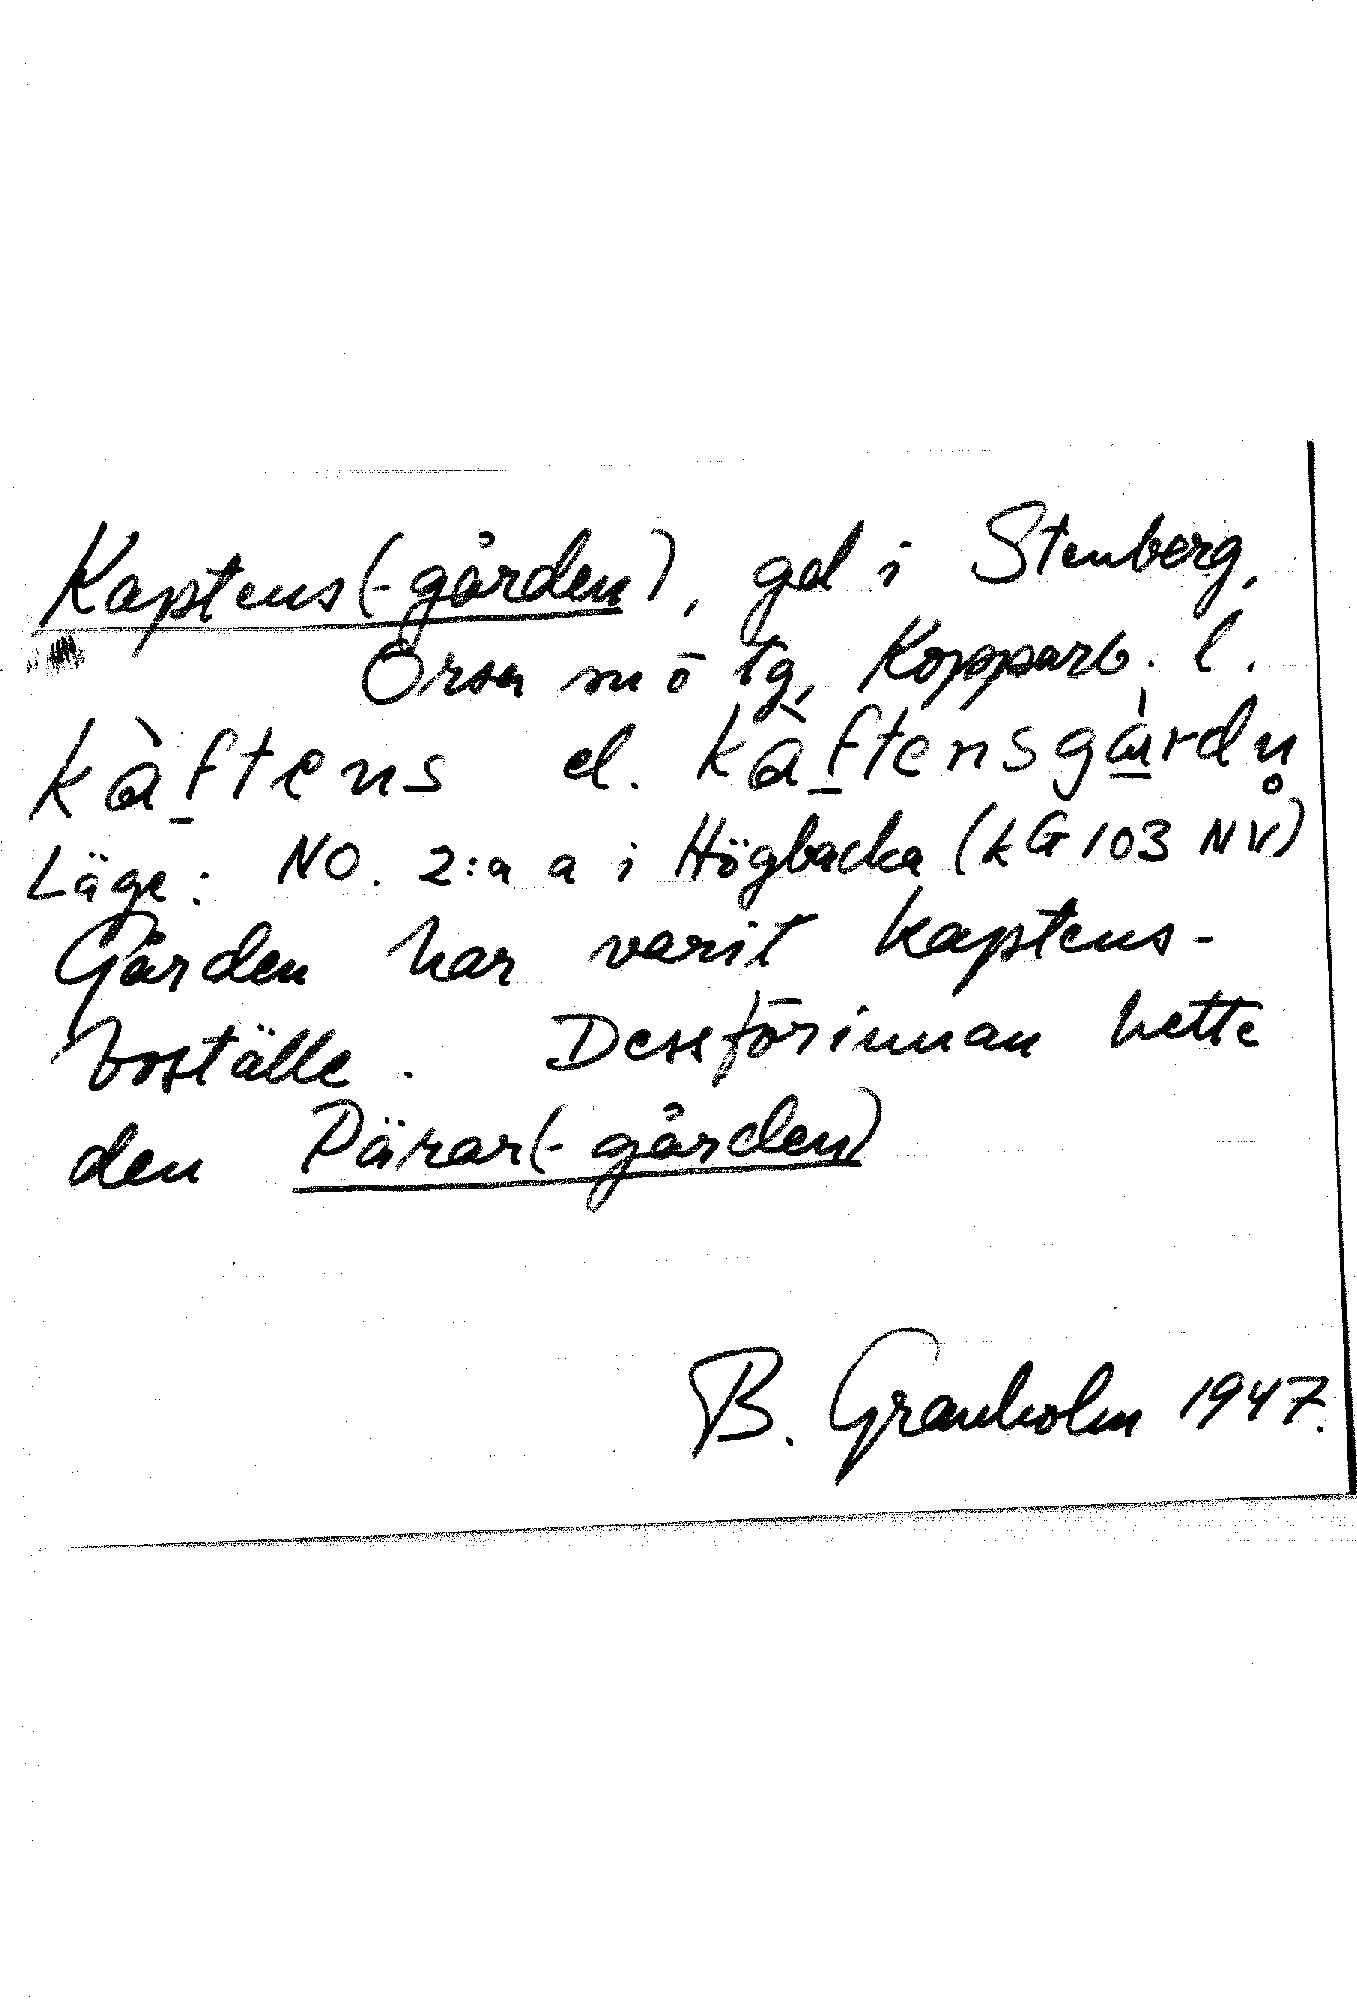 Kaptens(-gården), gd i Stenberg,
Orsa sn o tg, Kopparb. l.
kàftens el. kàftensgàrdn̥
Läge: NO. 2:a a i Högbacka (kG 103 NV)
Gården har varit kaptens-
boställe. Dessförinnan hette
den Pärar(-gården)
B. Granholm 1947.